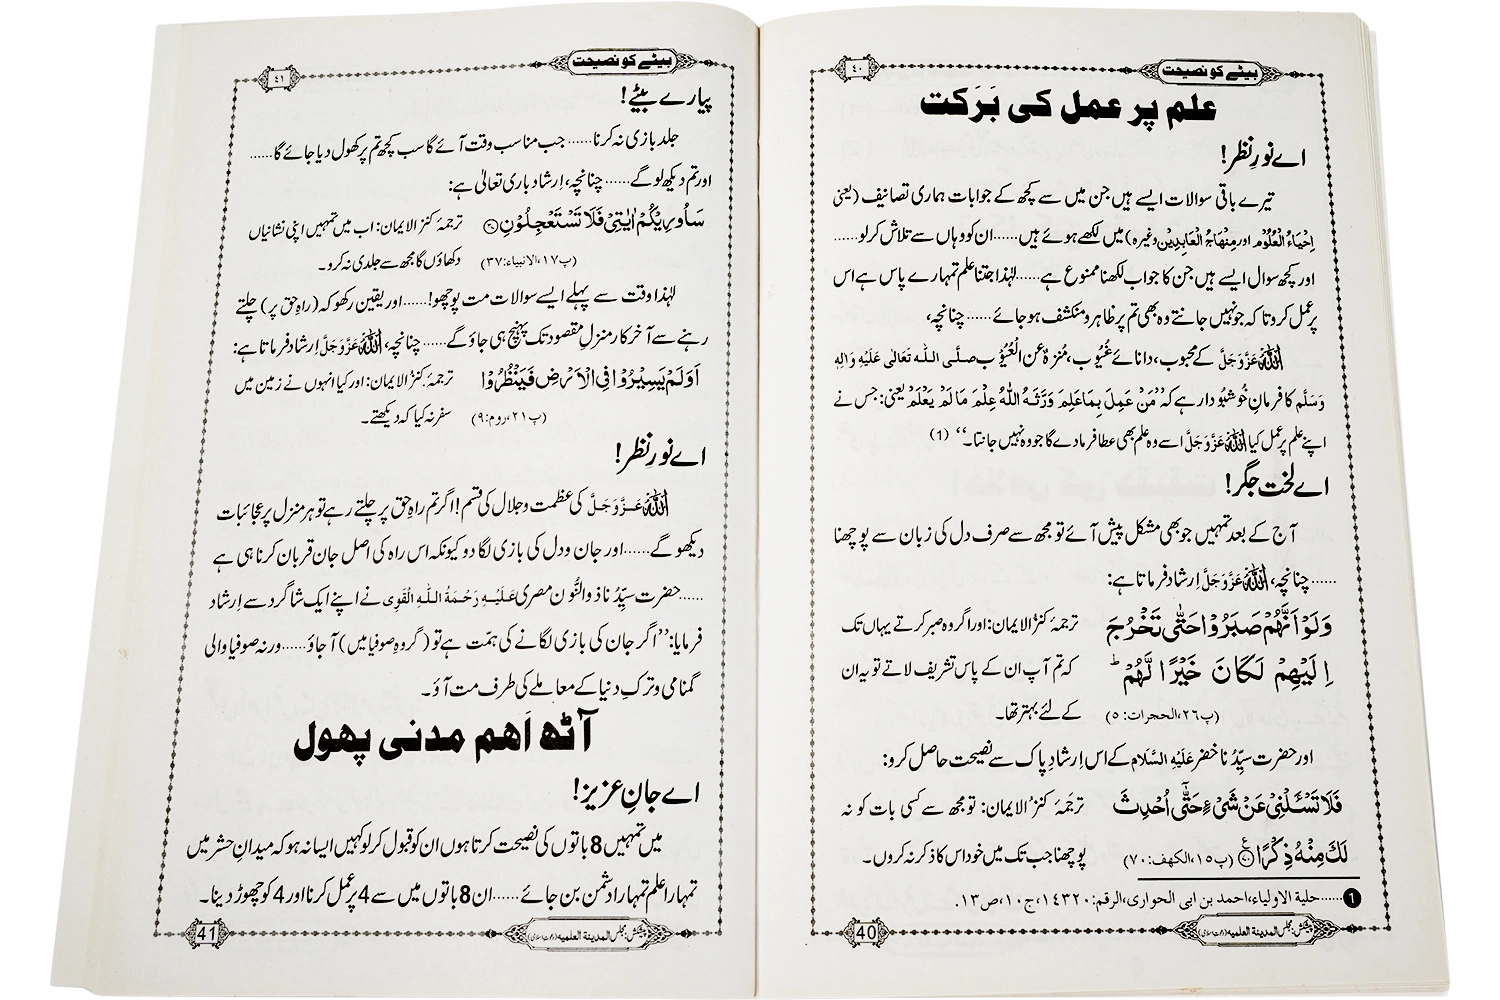 بیٹے کو نصیحت
٤٠
علم پر عمل کی بَرَکت
اے نورِ نظر!
تیرے باقی سوالات ایسے ہیں جن میں سے کچھ کے جوابات ہماری تصانیف (یعنی
اِحْیَاءُ الْعُلُوْم اور مِنْهَاجُ الْعَابِدِیْن وغیرہ) میں لکھے ہوئے ہیں......ان کو وہاں سے تلاش کر لو......
اور کچھ سوال ایسے ہیں جن کا جواب لکھنا ممنوع ہے......لہٰذا جتنا علم تمہارے پاس ہے اس
پر عمل کرو تا کہ جو نہیں جانتے وہ بھی تم پر ظاہر و منکشف ہو جائے......چنانچہ،
اللہ عَزَّوَجَلَّ کے محبوب، دانائے غُیُوب، مُنَزَّہٌ عَنِ الْعُیُوْب صلَّی اللہ تعالٰی عَلَیْہِ وَاٰلِہٖ
وَسَلَّم کا فرمانِ خُوشبُودار ہے کہ ’’مَنْ عَمِلَ بِمَا عَلِمَ وَرَّثَهُ اللّٰهُ عِلْمَ مَا لَمْ یَعْلَمْ یعنی: جس نے
اپنے علم پر عمل کیا اللہ عَزَّوَجَلَّ اسے وہ علم بھی عطا فرما دے گا جو وہ نہیں جانتا۔‘‘ (1)
اے لختِ جگر!
آج کے بعد تمہیں جو بھی مشکل پیش آئے تو مجھ سے صرف دل کی زبان سے پوچھنا
......چنانچہ، اللہ عَزَّوَجَلَّ اِرشاد فرماتا ہے:
وَلَوْ اَنَّهُمْ صَبَرُوْا حَتّٰى تَخْرُجَ ترجمۂ کنز الایمان: اور اگر وہ صبر کرتے یہاں تک
اِلَیْهِمْ لَكَانَ خَیْرًا لَّهُمْ ؕ کہ تم آپ ان کے پاس تشریف لاتے تو یہ ان
(پ۲۶، الحجرات: ۵) کے لئے بہتر تھا۔
اور حضرت سیِّدُنا خضر عَلَیْہِ السَّلَام کے اس اِرشادِ پاک سے نصیحت حاصل کرو:
فَلَا تَسْـَٔلْنِیْ عَنْ شَیْءٍ حَتّٰۤى اُحْدِثَ ترجَمۂ کنز الایمان: تو مجھ سے کسی بات کو نہ
لَكَ مِنْهُ ذِكْرًا (پ۱۵، الکھف: ۷۰) پوچھنا جب تک میں خود اس کا ذکر نہ کروں۔
1......حلیة الاولیاء، احمد بن ابی الحواری، الرقم: ۱۴۳۲۰، ج۱۰، ص۱۳.
پیشکش: مجلس المدینة العلمیه (دعوتِ اسلامی)
40
بیٹے کو نصیحت
٤١
پیارے بیٹے!
جلد بازی نہ کرنا......جب مناسب وقت آئے گا سب کچھ تم پر کھول دیا جائے گا......
اور تم دیکھ لو گے......چنانچہ، اِرشادِ باری تعالیٰ ہے:
سَاُورِیْكُمْ اٰیٰتِیْ فَلَا تَسْتَعْجِلُوْنِ ترجمۂ کنز الایمان: اب میں تمہیں اپنی نشانیاں
(پ۱۷، الانبیاء: ۳۷) دکھاؤں گا مجھ سے جلدی نہ کرو۔
لہٰذا وقت سے پہلے ایسے سوالات مت پوچھو!......اور یقین رکھو کہ (راہِ حق پر) چلتے
رہنے سے آخر کار منزلِ مقصود تک پہنچ ہی جاؤ گے......چنانچہ، اللہ عَزَّوَجَلَّ اِرشاد فرماتا ہے:
اَوَلَمْ یَسِیْرُوْا فِی الْاَرْضِ فَیَنْظُرُوْا ترجمۂ کنز الایمان: اور کیا انہوں نے زمین میں
(پ۲۱، روم: ۹) سفر نہ کیا کہ دیکھتے۔
اے نورِ نظر!
اللہ عَزَّوَجَلَّ کی عظمت و جلال کی قسم! اگر تم راہِ حق پر چلتے رہے تو ہر منزل پر عجائبات
دیکھو گے......اور جان و دل کی بازی لگا دو کیونکہ اس راہ کی اصل جان قربان کرنا ہی ہے
......حضرت سیِّدُنا ذوالنُّون مصری عَلَیْہِ رَحْمَۃُ اللہِ الْقَوِی نے اپنے ایک شاگرد سے اِرشاد
فرمایا: ’’اگر جان کی بازی لگانے کی ہمّت ہے تو (گروہِ صوفیا میں) آ جاؤ......ورنہ صوفیا والی
گمنامی و ترکِ دنیا کے معاملے کی طرف مت آؤ۔
آٹھ اَہم مدنی پھول
اے جانِ عزیز!
میں تمہیں 8 باتوں کی نصیحت کرتا ہوں ان کو قبول کر لو کہیں ایسا نہ ہو کہ میدانِ حشر میں
تمہارا علم تمہارا دشمن بن جائے......ان 8 باتوں میں سے 4 پر عمل کرنا اور 4 کو چھوڑ دینا۔
پیشکش: مجلس المدینة العلمیه (دعوتِ اسلامی)
41